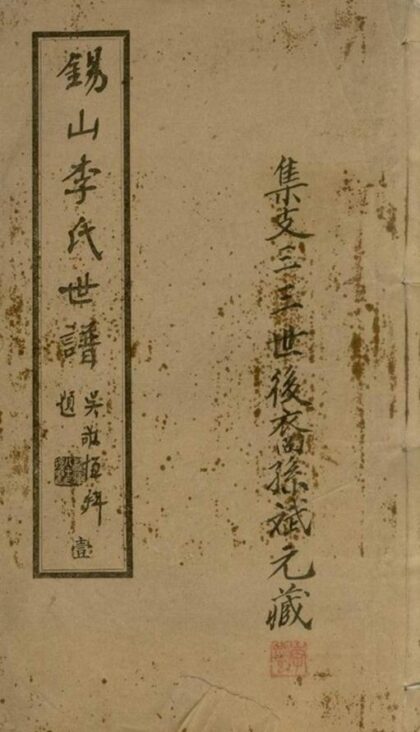 集支三三世後裔孫斌元藏
錫山李氏世譜
吳敬恆拜
題
壹